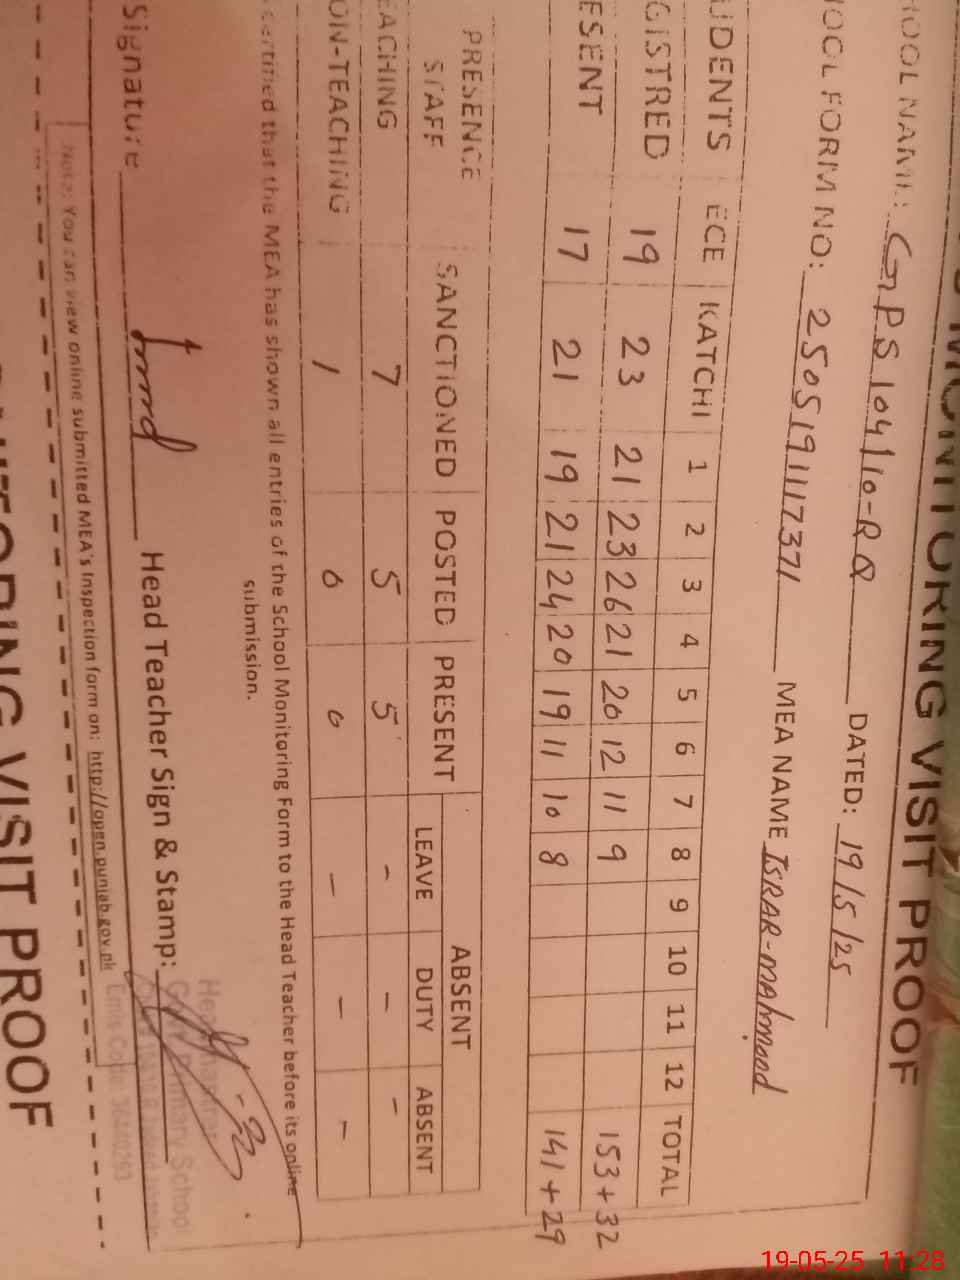 MONITORING VISIT PROOF
HOOL NAME: GPS 104/10-R Q DATED: 19/5/25
OOL FORM NO: 2505191117371 MEA NAME ISRAR-MAhmood
UDENTS ECE KATCHI 1 2 3 4 5 6 7 8 9 10 11 12 TOTAL
GISTRED 19 23 21 23 26 21 20 12 11 9 153+32
ESENT 17 21 19 21 24 20 19 11 10 8 141+29
PRESENCE STAFF SANCTIONED POSTED PRESENT ABSENT
LEAVE DUTY ABSENT
EACHING 7 5 5 - - -
ON-TEACHING 1 0 0 - - -
certified that the MEA has shown all entries of the School Monitoring Form to the Head Teacher before its online
submission.
Signature Head Teacher Sign & Stamp:
Headmaster
Govt. Primary School
Emis Code 36440293
Note: You can view online submitted MEA's Inspection form on: http://open.punjab.gov.pk
TORING VISIT PROOF
19-05-25 11:28